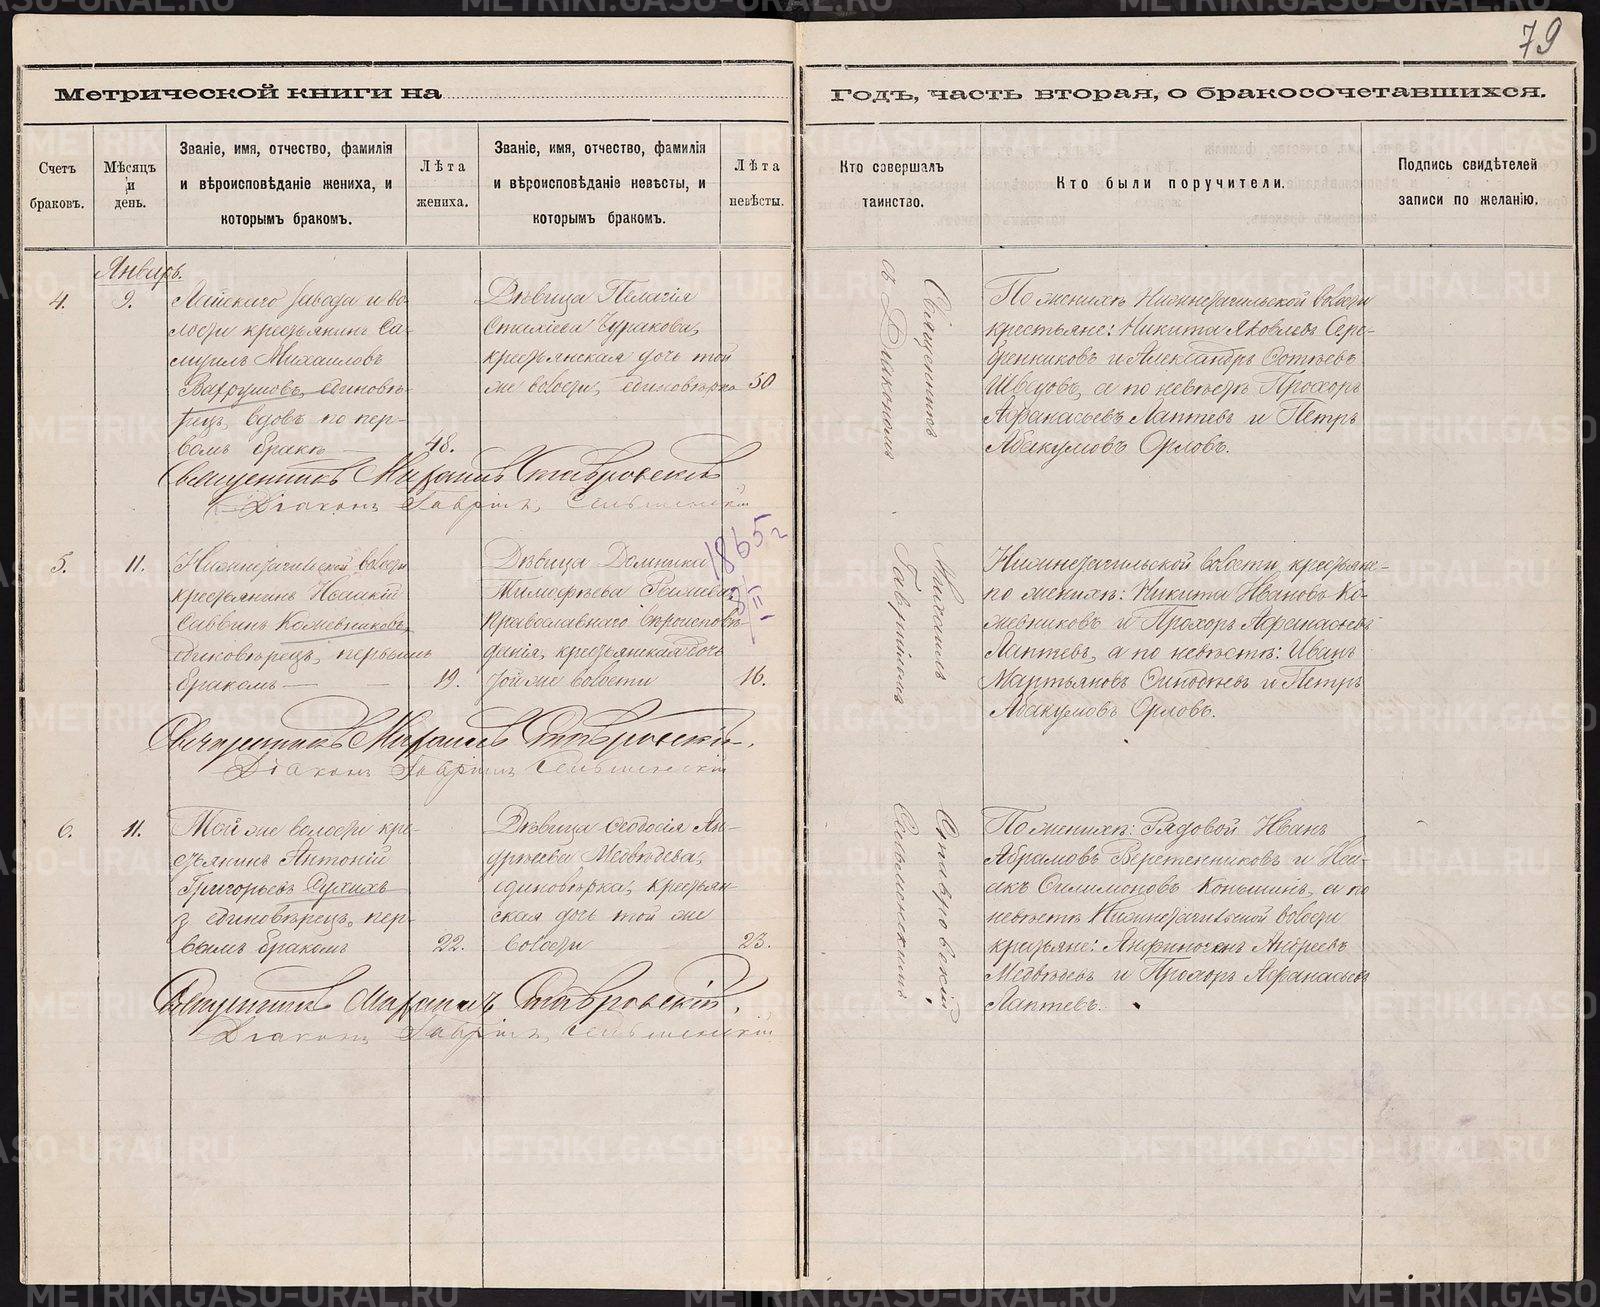 79
Метрической книги на
Годъ, часть вторая, о бракосочетавшихся.
Счетъ браковъ.
Мѣсяцъ и день.
Званіе, имя, отчество, фамилія
и вѣроисповѣданіе жениха, и
которымъ бракомъ.
Лѣта жениха.
Званіе, имя, отчество, фамилія
и вѣроисповѣданіе невѣсты, и
которымъ бракомъ.
Лѣта невѣсты.
Кто совершалъ
таинство.
Кто были поручители.
Подпись свидѣтелей
записи по желанію.
Январь.
4.
9.
Лайскаго завода и во-
лости крестьянинъ Са-
муилъ Михаиловъ
Вахрушовъ, единовѣ-
рецъ, вдовъ по пер-
вомъ бракѣ
48.
Дѣвица Пелагія
Чуракова,
крестьянская дочь той
же волости, единовѣрка
50
Священникъ Михаилъ Ставровскій
Діаконъ Гавріилъ Сельменскій
Священникъ
Михаилъ
Ставровскій,
съ Діакономъ
Гавріиломъ
Сельменскимъ
По женихѣ Нижнетагильской волости
крестьяне: Никита Яковлевъ Сере-
бренниковъ и Александръ Фотіевъ
Швецовъ, а по невѣстѣ Прохоръ
Афанасьевъ Лаптевъ и Петръ
Абакумовъ Орловъ.
5.
11.
Нижнетагильской волости
крестьянинъ Исаакій
Саввинъ Кожевниковъ,
единовѣрецъ, первымъ
бракомъ
19.
Дѣвица Домника
Тимофѣева
православнаго вѣроисповѣ-
данія, крестьянская дочь
той же волости
16.
1865 г
Священникъ Михаилъ Ставровскій.
Діаконъ Гавріилъ Сельменскій
Нижнетагильской волости крестьяне-
по женихѣ: Никита Ивановъ Ко-
жевниковъ и Прохоръ Афанасьевъ
Лаптевъ, а по невѣстѣ: Иванъ
Мартьяновъ и Петръ
Абакумовъ Орловъ.
6.
11.
Той же волости кре-
стьянинъ Антоній
Григорьевъ Сухихъ
единовѣрецъ, пер-
вымъ бракомъ
22.
Дѣвица Ѳеодосія Ан-
дрѣева Медвѣдева,
единовѣрка, крестьян-
ская дочь той же
волости
23.
Священникъ Михаилъ Ставровскій.
Діаконъ Гавріилъ Сельменскій
По женихѣ: Рядовой Иванъ
Абрамовъ Веретенниковъ и Иса-
акъ Филимоновъ Коньшинъ, а по
невѣстѣ Нижнетагильской волости
крестьяне: Андреевъ
Медвѣдевъ и Прохоръ Афанасьевъ
Лаптевъ.